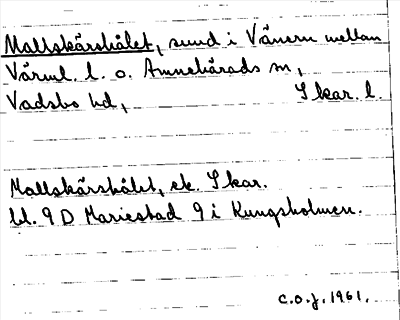 Mallskärshålet, sund i Vänern mellan
Värml. l. o. Amnehärads sn,
Vadsbo hd, Skar. l.
Mallskärshålet, ek. Skar.
bl. 9 D Mariestad 9 i Kungsholmen.
C.O.J. 1961.